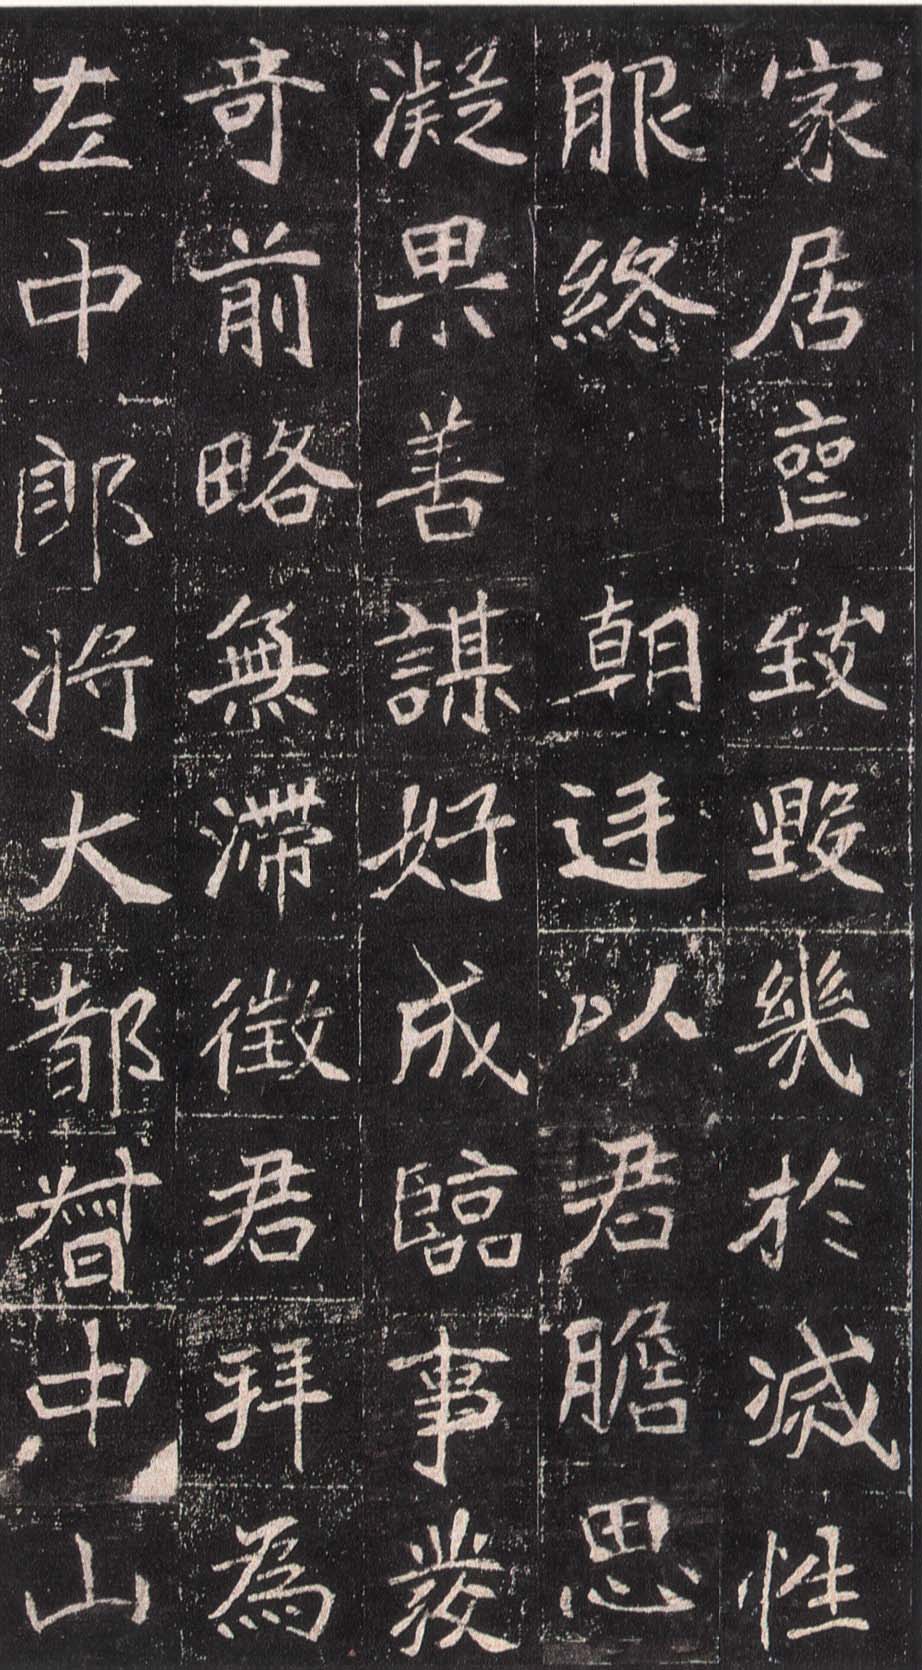 家居喪致毀幾於滅性
服終　朝廷以君膽思
凝果善謀好成臨事發
奇前略無滯徵君拜為
左中郎將大都督中山